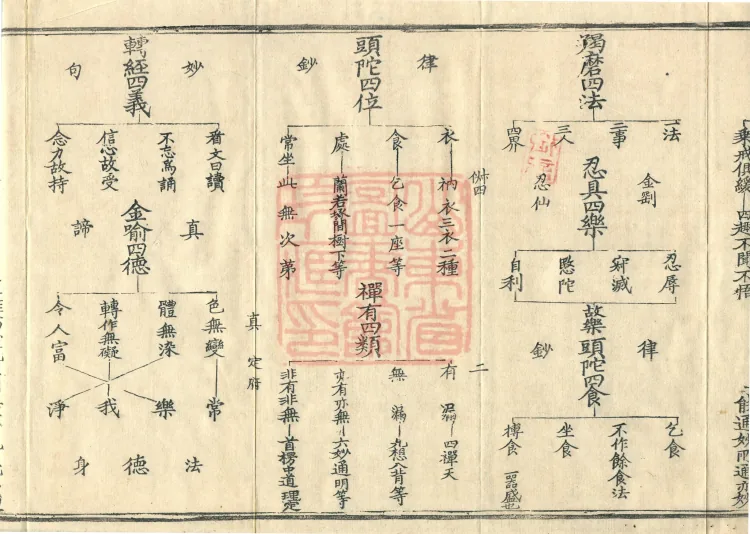 乘戒俱緩 四趣不聞不悟
羯磨四法
法
二事
三人
四界
金剛
忍仙
忍具四樂
忍辱
寂滅
慜陀
自利
故樂
頭陀四食
律
鈔
乞食
不作餘食法
坐食
摶食 一器盛也
二
律
鈔
頭陀四位
衣 衲衣三衣二種
食 乞食一座等
處 蘭若塚間樹下等
常坐 此無次第
禪有四類
有漏 四禪天
無漏 九想八背等
亦有亦無 六妙通明等
非有非無 首楞中道理定
真定府
妙
句
轉經四義
看文曰讀
不忘爲誦
信心故受
念力故持
真
諦
金喻四德
色無變
體無染
轉作無礙
令人富
常
樂
我
淨
法
德
身